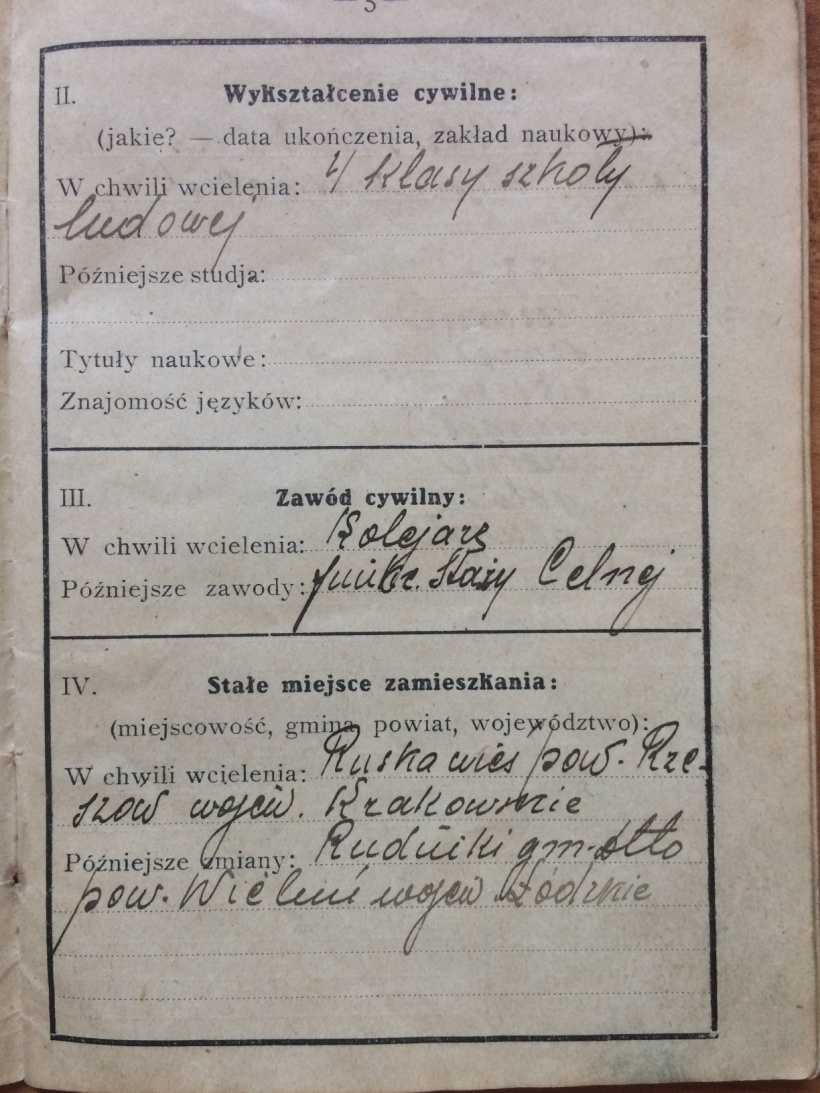 — 5 —
II. Wykształcenie cywilne:
(jakie? — data ukończenia, zakład naukowy):
W chwili wcielenia: 4 klasy szkoły
ludowej
Późniejsze studja:
Tytuły naukowe:
Znajomość języków:
III. Zawód cywilny:
W chwili wcielenia: Kolejarz
Późniejsze zawody: funkc. Straży Celnej
IV. Stałe miejsce zamieszkania:
(miejscowość, gmina, powiat, województwo):
W chwili wcielenia: Ruska wieś pow. Rze-
szów wojew. Krakowskie
Późniejsze zmiany: Rudniki gm.
pow. Wieluń wojew. Łódzkie